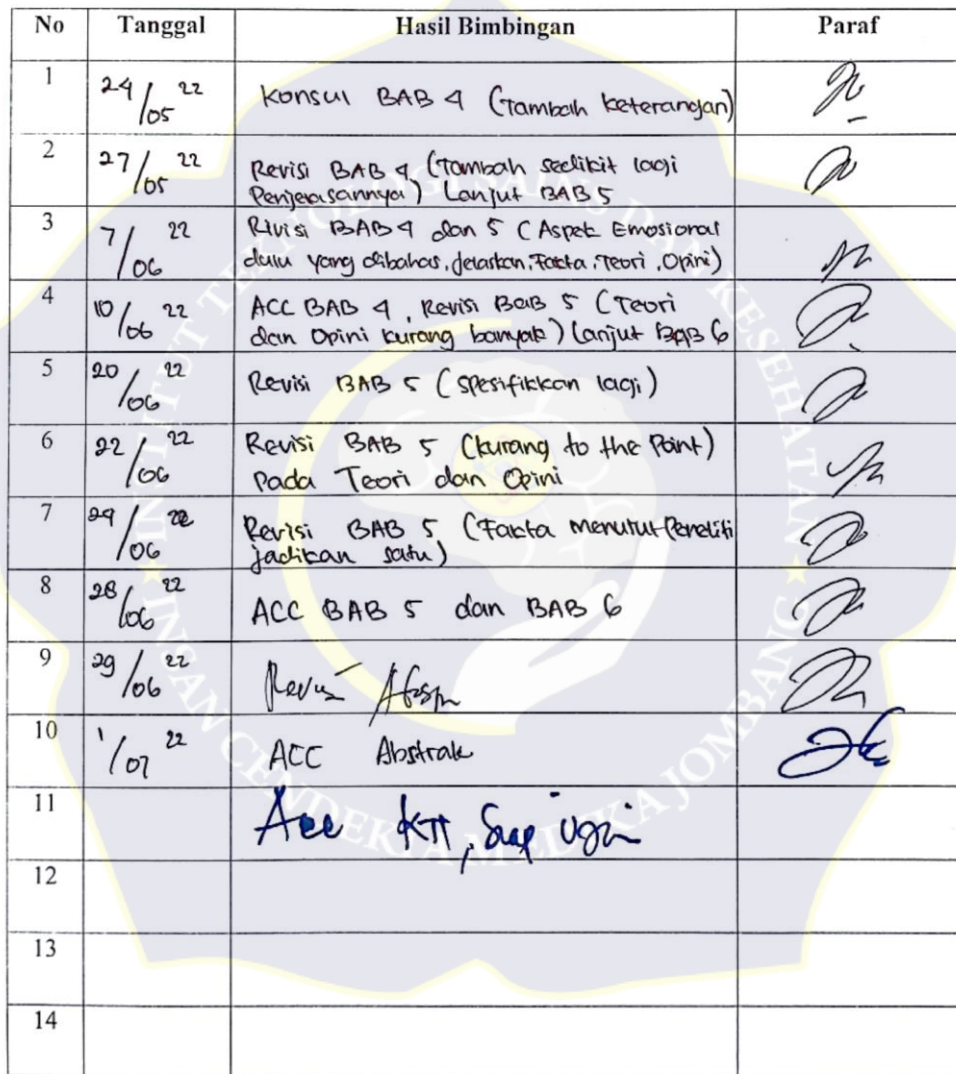 No Tanggal Hasil Bimbingan Paraf
1 24/05 22 Konsul BAB 4 (Tambah keterangan)
2 27/05 22 Revisi BAB 4 (Tambah sedikit lagi
Penjelasannya) Lanjut BAB 5
3 7/06 22 Rivisi BAB 4 dan 5 (Aspek Emosional
dulu yang dibahas, Jelaskan, Fakta, Teori, Opini)
4 10/06 22 ACC BAB 4, Revisi BaB 5 (Teori
dan Opini kurang banyak) Lanjut BAB 6
5 20/06 22 Revisi BAB 5 (Spesifikkan lagi)
6 22/06 22 Revisi BAB 5 (kurang to the Point)
Pada Teori dan Opini
7 24/06 22 Revisi BAB 5 (Fakta menurut Peneliti
jadikan satu)
8 28/06 22 ACC BAB 5 dan BAB 6
9 29/06 22 Revisi
10 1/07 22 ACC Abstrak
11 Acc KTI, Siap Ujian
12
13
14
INSTITUT TEKNOLOGI SAINS DAN KESEHATAN
INSAN CENDEKIA MEDIKA JOMBANG